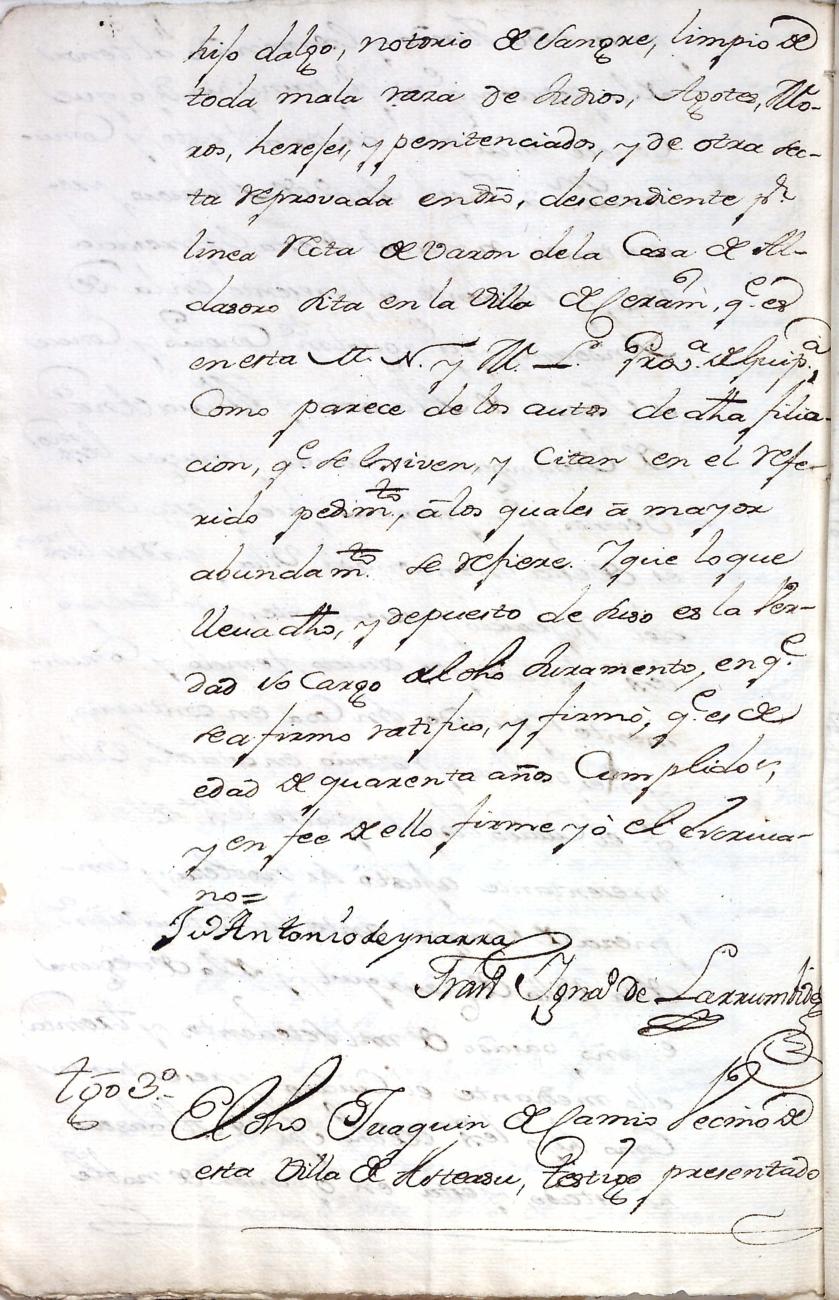 hijo dalgo, notorio de sangre, limpio de
toda mala raza de Judios, Agotes, Mo-
ros, herejes, y penitenciados, y de otra sec-
ta reprovada en dro, descendiente pr.
linea recta de Varon dela Casa de Al-
dasoro sita en la Villa de Ceram, q.e es
en esta M. N. y M. L. Prova. de Guip.a
Como parece de los autos de dha filia-
cion, q.e se exiven, y Citan en el refe-
rido pedim.to, á los quales á mayor
abundam.to se refiere. Y que lo que
lleva dho, y depuesto de suso es la Ver-
dad so cargo del dho Juramento, en q.e
se afirmo ratifico, y firmó, q.e es de
edad de quarenta años Cumplidos,
y en fee de ello firme yó el Escriva-
no=
Antonio de ynarra
Fran.co Igna.o de Larrumbide
Tgo 3.o
El dho Juaquin de Camio Vecino de
esta Villa de Asteasu, testigo presentado